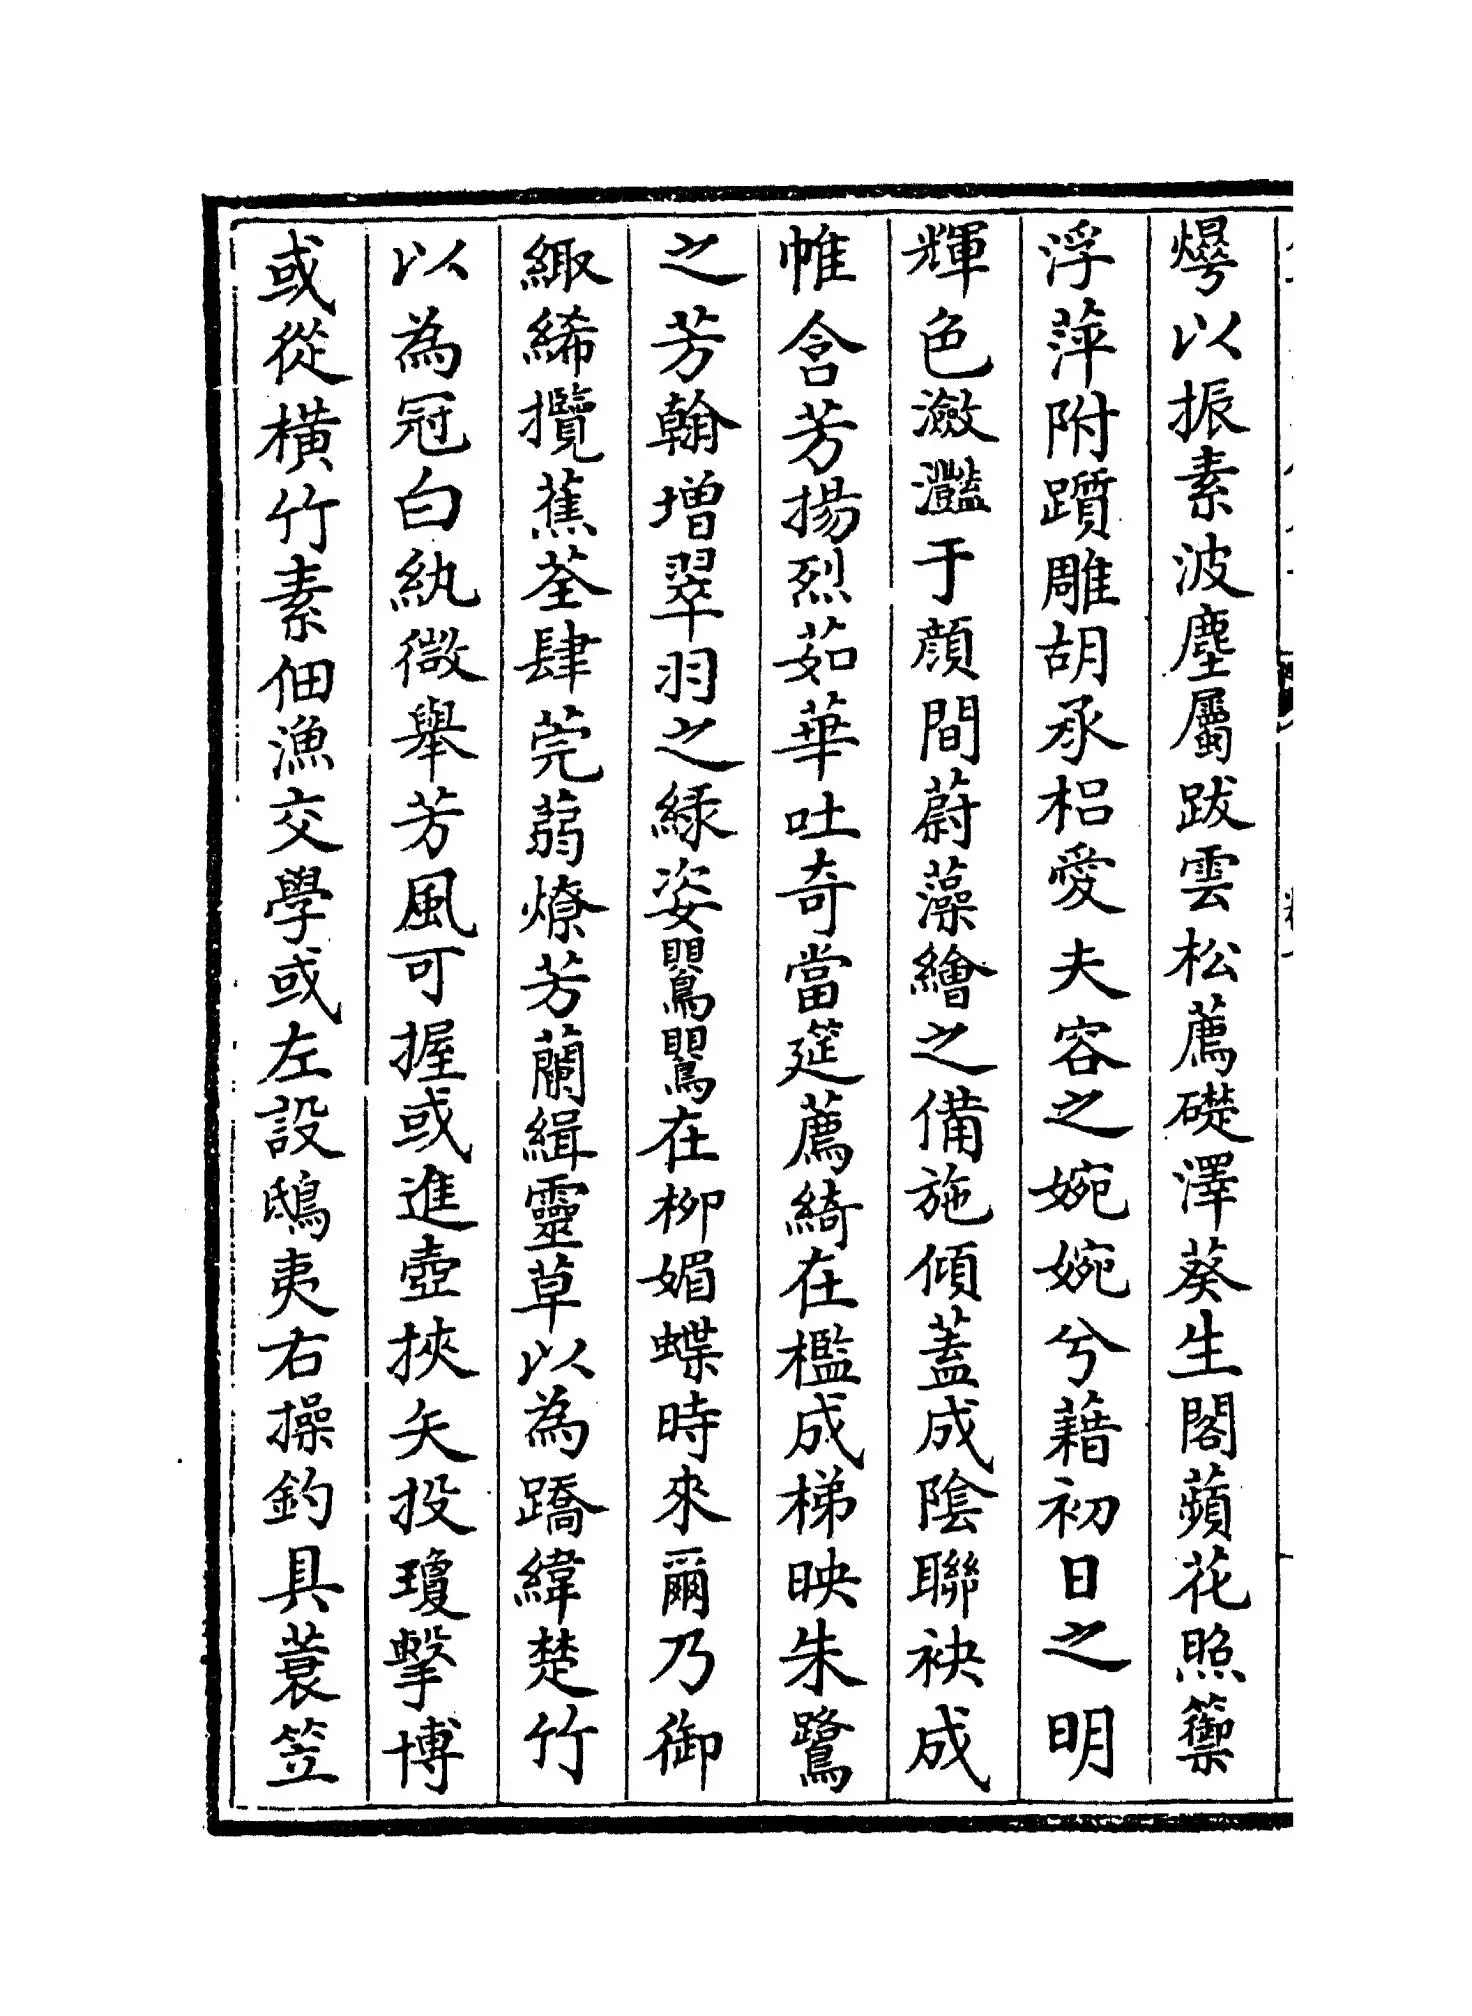 以振素波塵屬跋雲松薦礎澤葵生閣蘋花照籞
浮萍附躓雕胡承梠愛夫容之婉婉兮藉初日之明
輝色瀲灩于顔間蔚藻繪之備施傾蓋成陰聯袂成
帷含芳揚烈茹華吐奇當筵薦綺在檻成梯映朱鷺
之芳翰增翠羽之緑姿鸎鸎在柳媚蝶時來爾乃御
緅絺攬蕉荃肆莞蒻燎芳蘭緝靈草以為蹻緯楚竹
以為冠白紈微舉芳風可握或進壺挾矢投瓊擊博
或從橫竹素佃漁交學或左設鴟夷右操釣具蓑笠